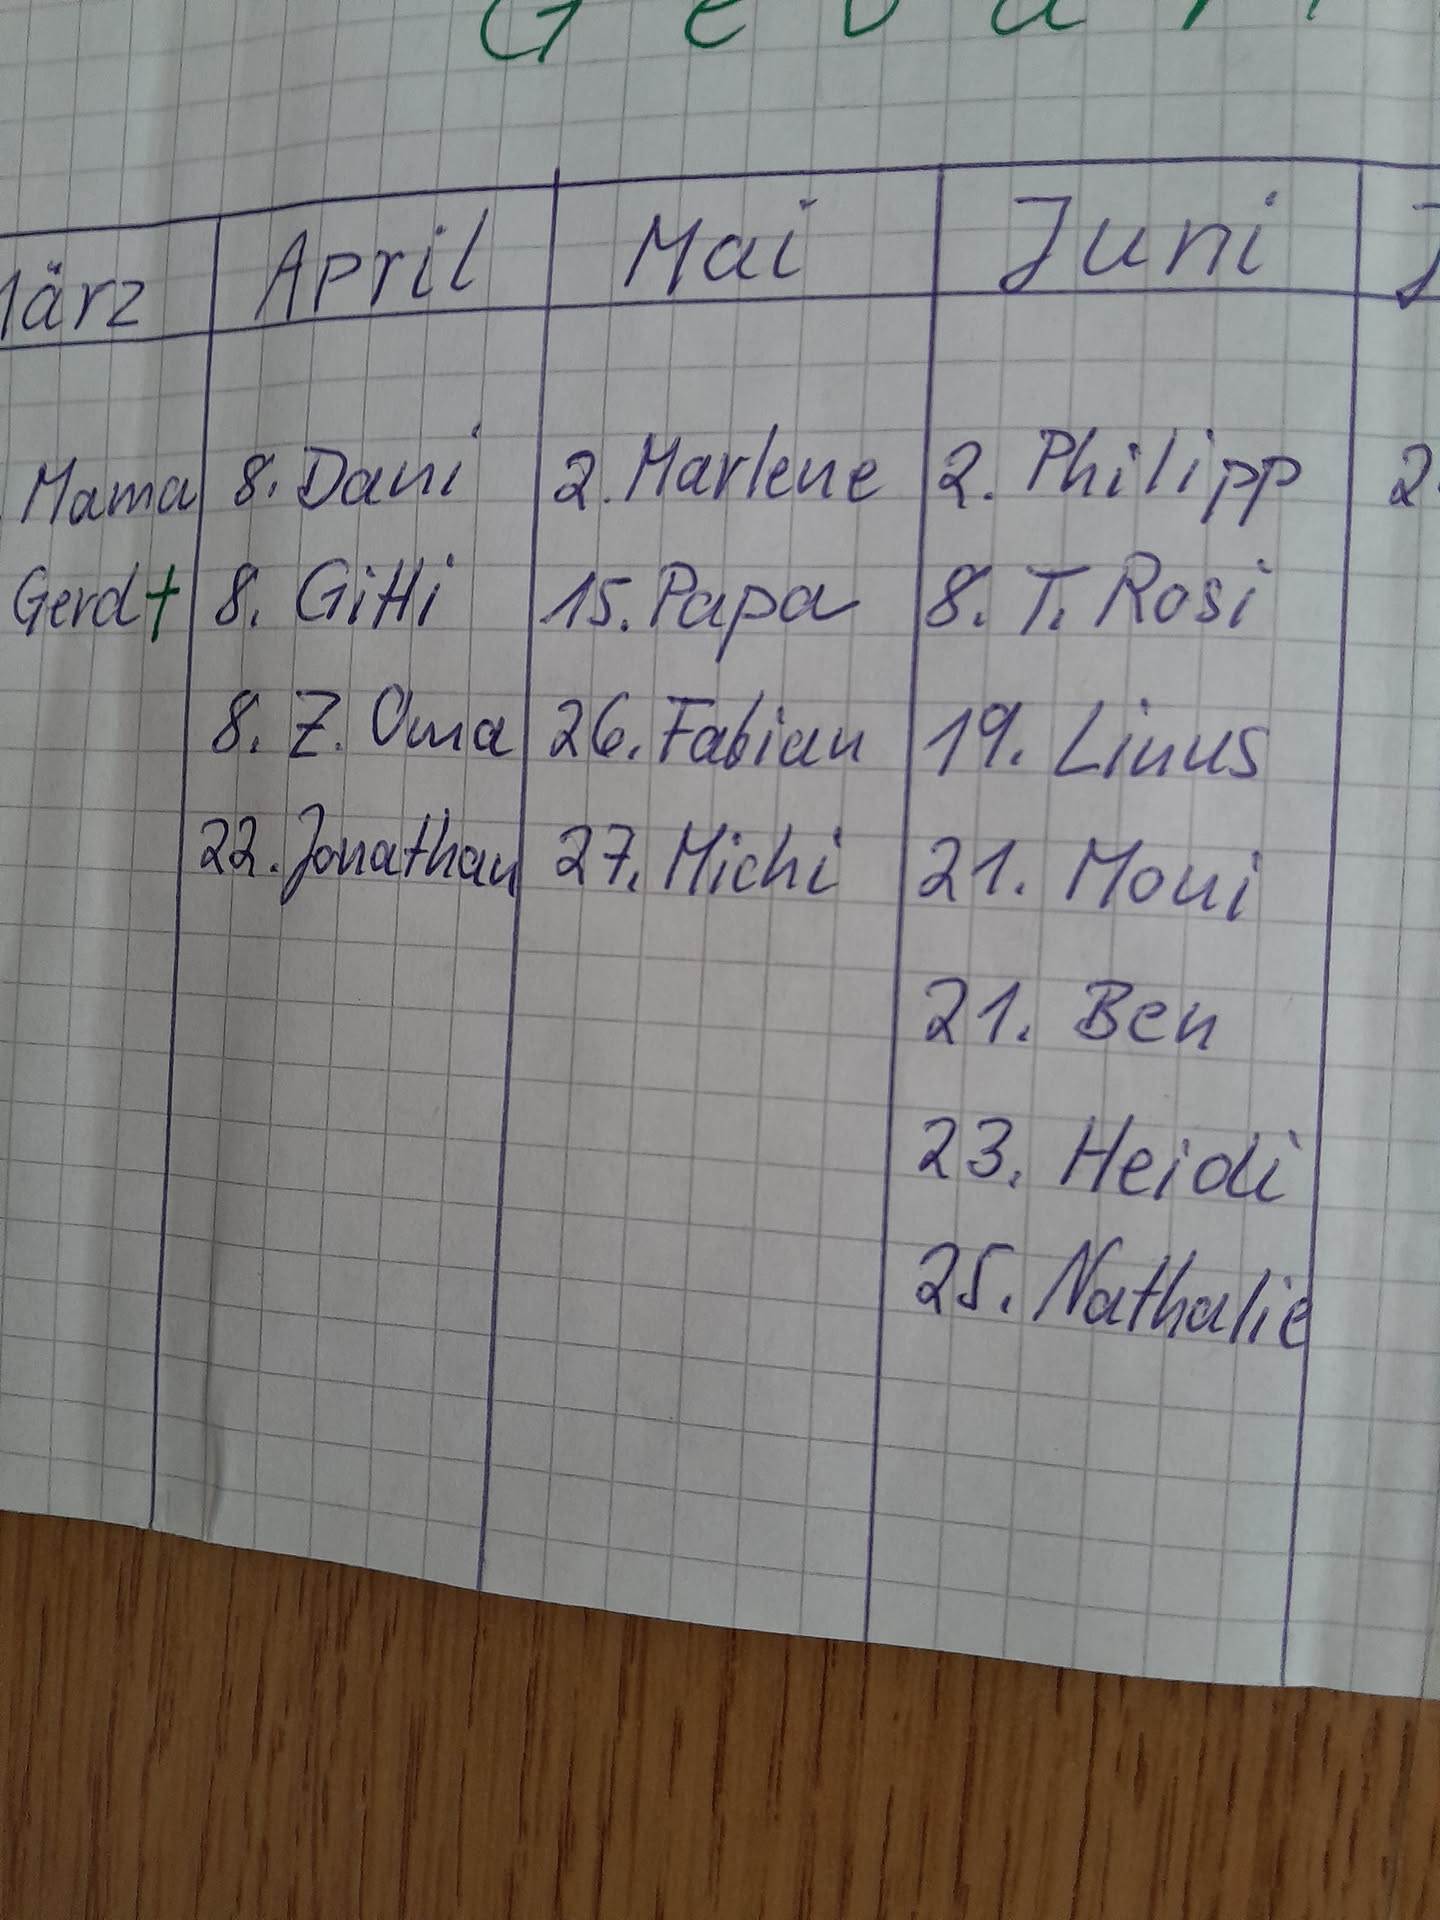 März April Mai Juni
Mama 8. Dani 2. Marlene 2. Philipp 2.
Gerd+ 8. Gitti 15. Papa 8. T. Rosi
8. Z. Oma 26. Fabian 19. Linus
22. Jonathan 27. Michi 21. Moni
21. Ben
23. Heidi
25. Nathalie